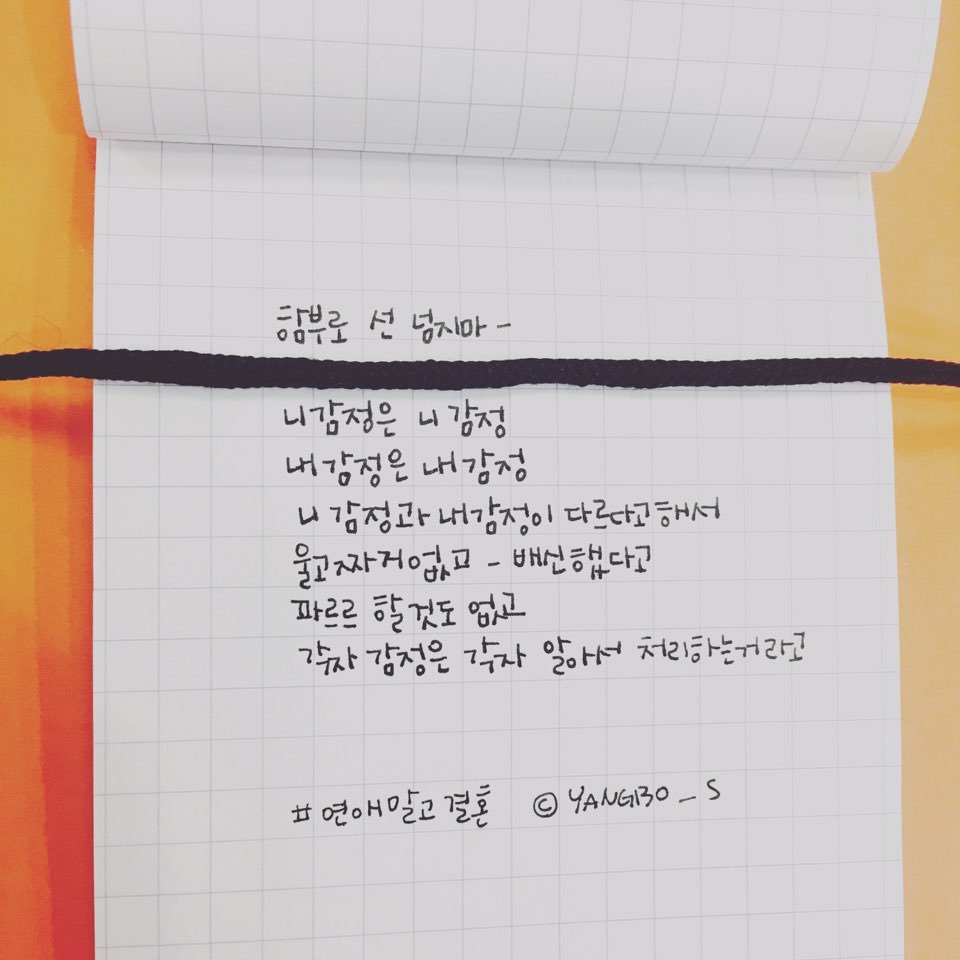 함부로 선 넘지마 -
니감정은 니 감정
내감정은 내감정
니 감정과 내감정이 다르다고해서
울고짜거없고 - 배신했다고
파르르 할것도 없고
각자 감정은 각자 알아서 처리하는거라고
#연애말고결혼 © YANGI30_S